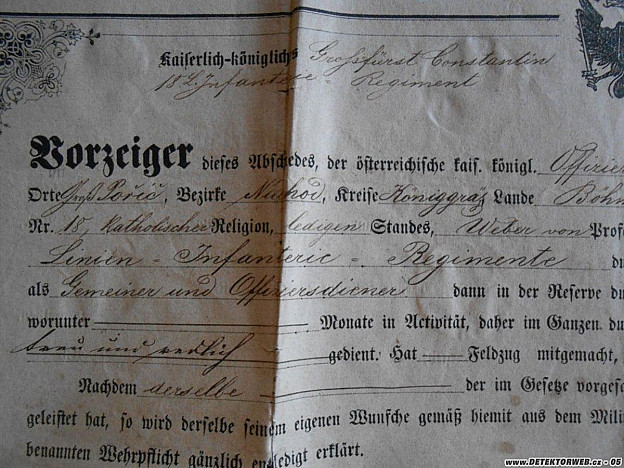 Kaiserlich-königliches Großfürst Constantin
18 L. Infanterie Regiment
Vorzeiger dieses Abschiedes, der österreichische kais. königl. Offizier
Orte Groß Pořič, Bezirke Nachod, Kreise Königgräz Lande Böhm
Nr. 18, katholischer Religion, ledigen Standes, Weber von Profe
Linien - Infanterie - Regimente du
als Gemeiner und Offiziersdiener dann in der Reserve du
worunter Monate in Activität, daher im Ganzen du
treu und redlich gedient. Hat Feldzug mitgemacht,
Nachdem derselbe der im Gesetze vorgesc
geleistet hat, so wird derselbe seinem eigenen Wunsche gemäß hiemit aus dem Mili
benannten Wehrpflicht gänzlich entledigt erklärt.
www.DETEKTORWEB.cz - 05